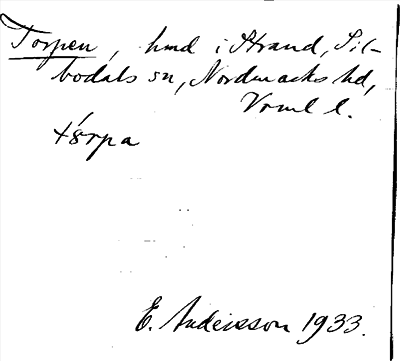 Torpen, hmd i Strand, Sil-
bodals sn, Nordmarks hd,
Vrml l.
tɷ́rpa
E. Andersson 1933.